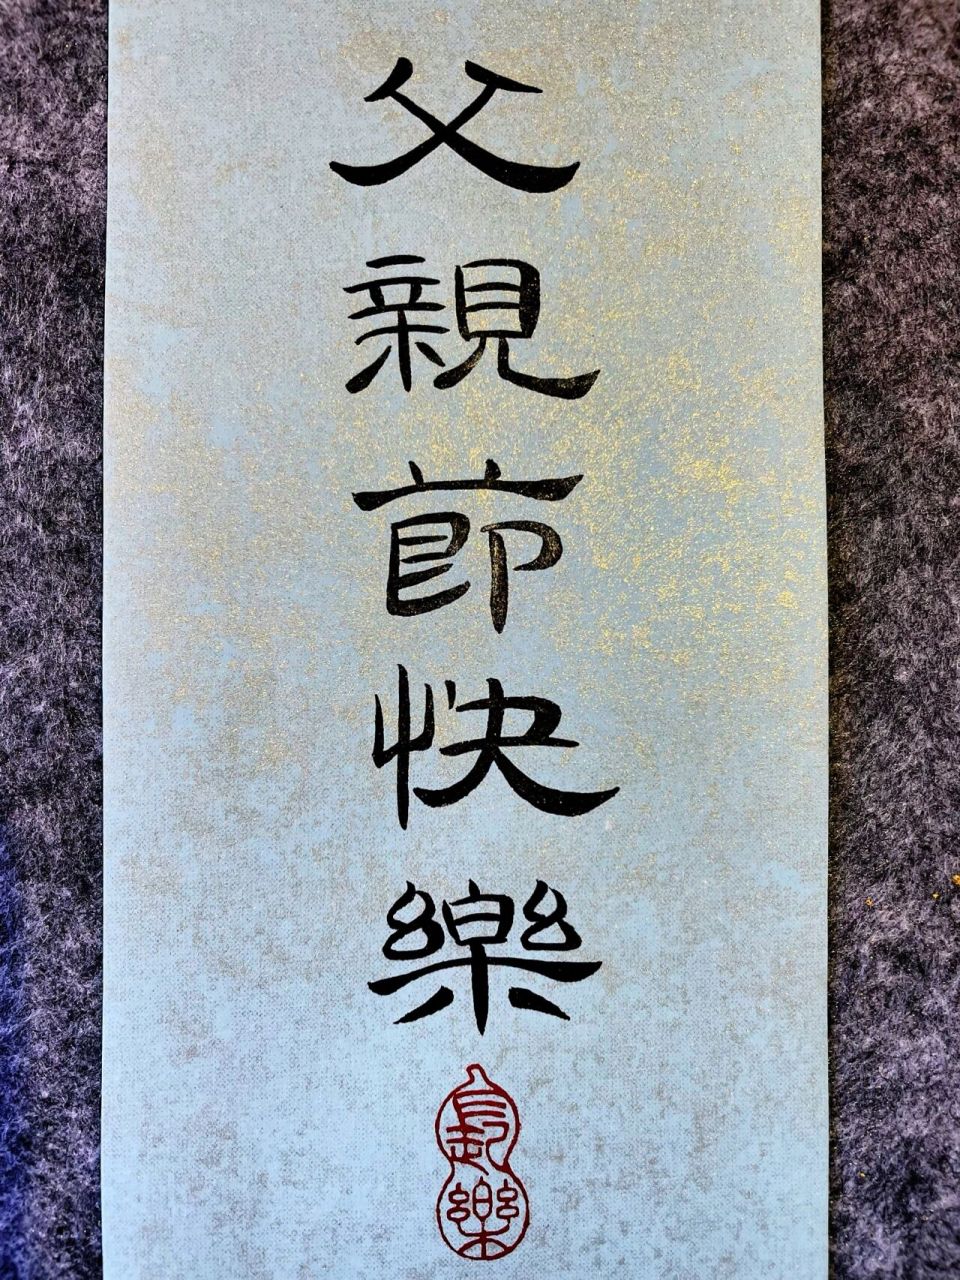 父親節快樂
樂